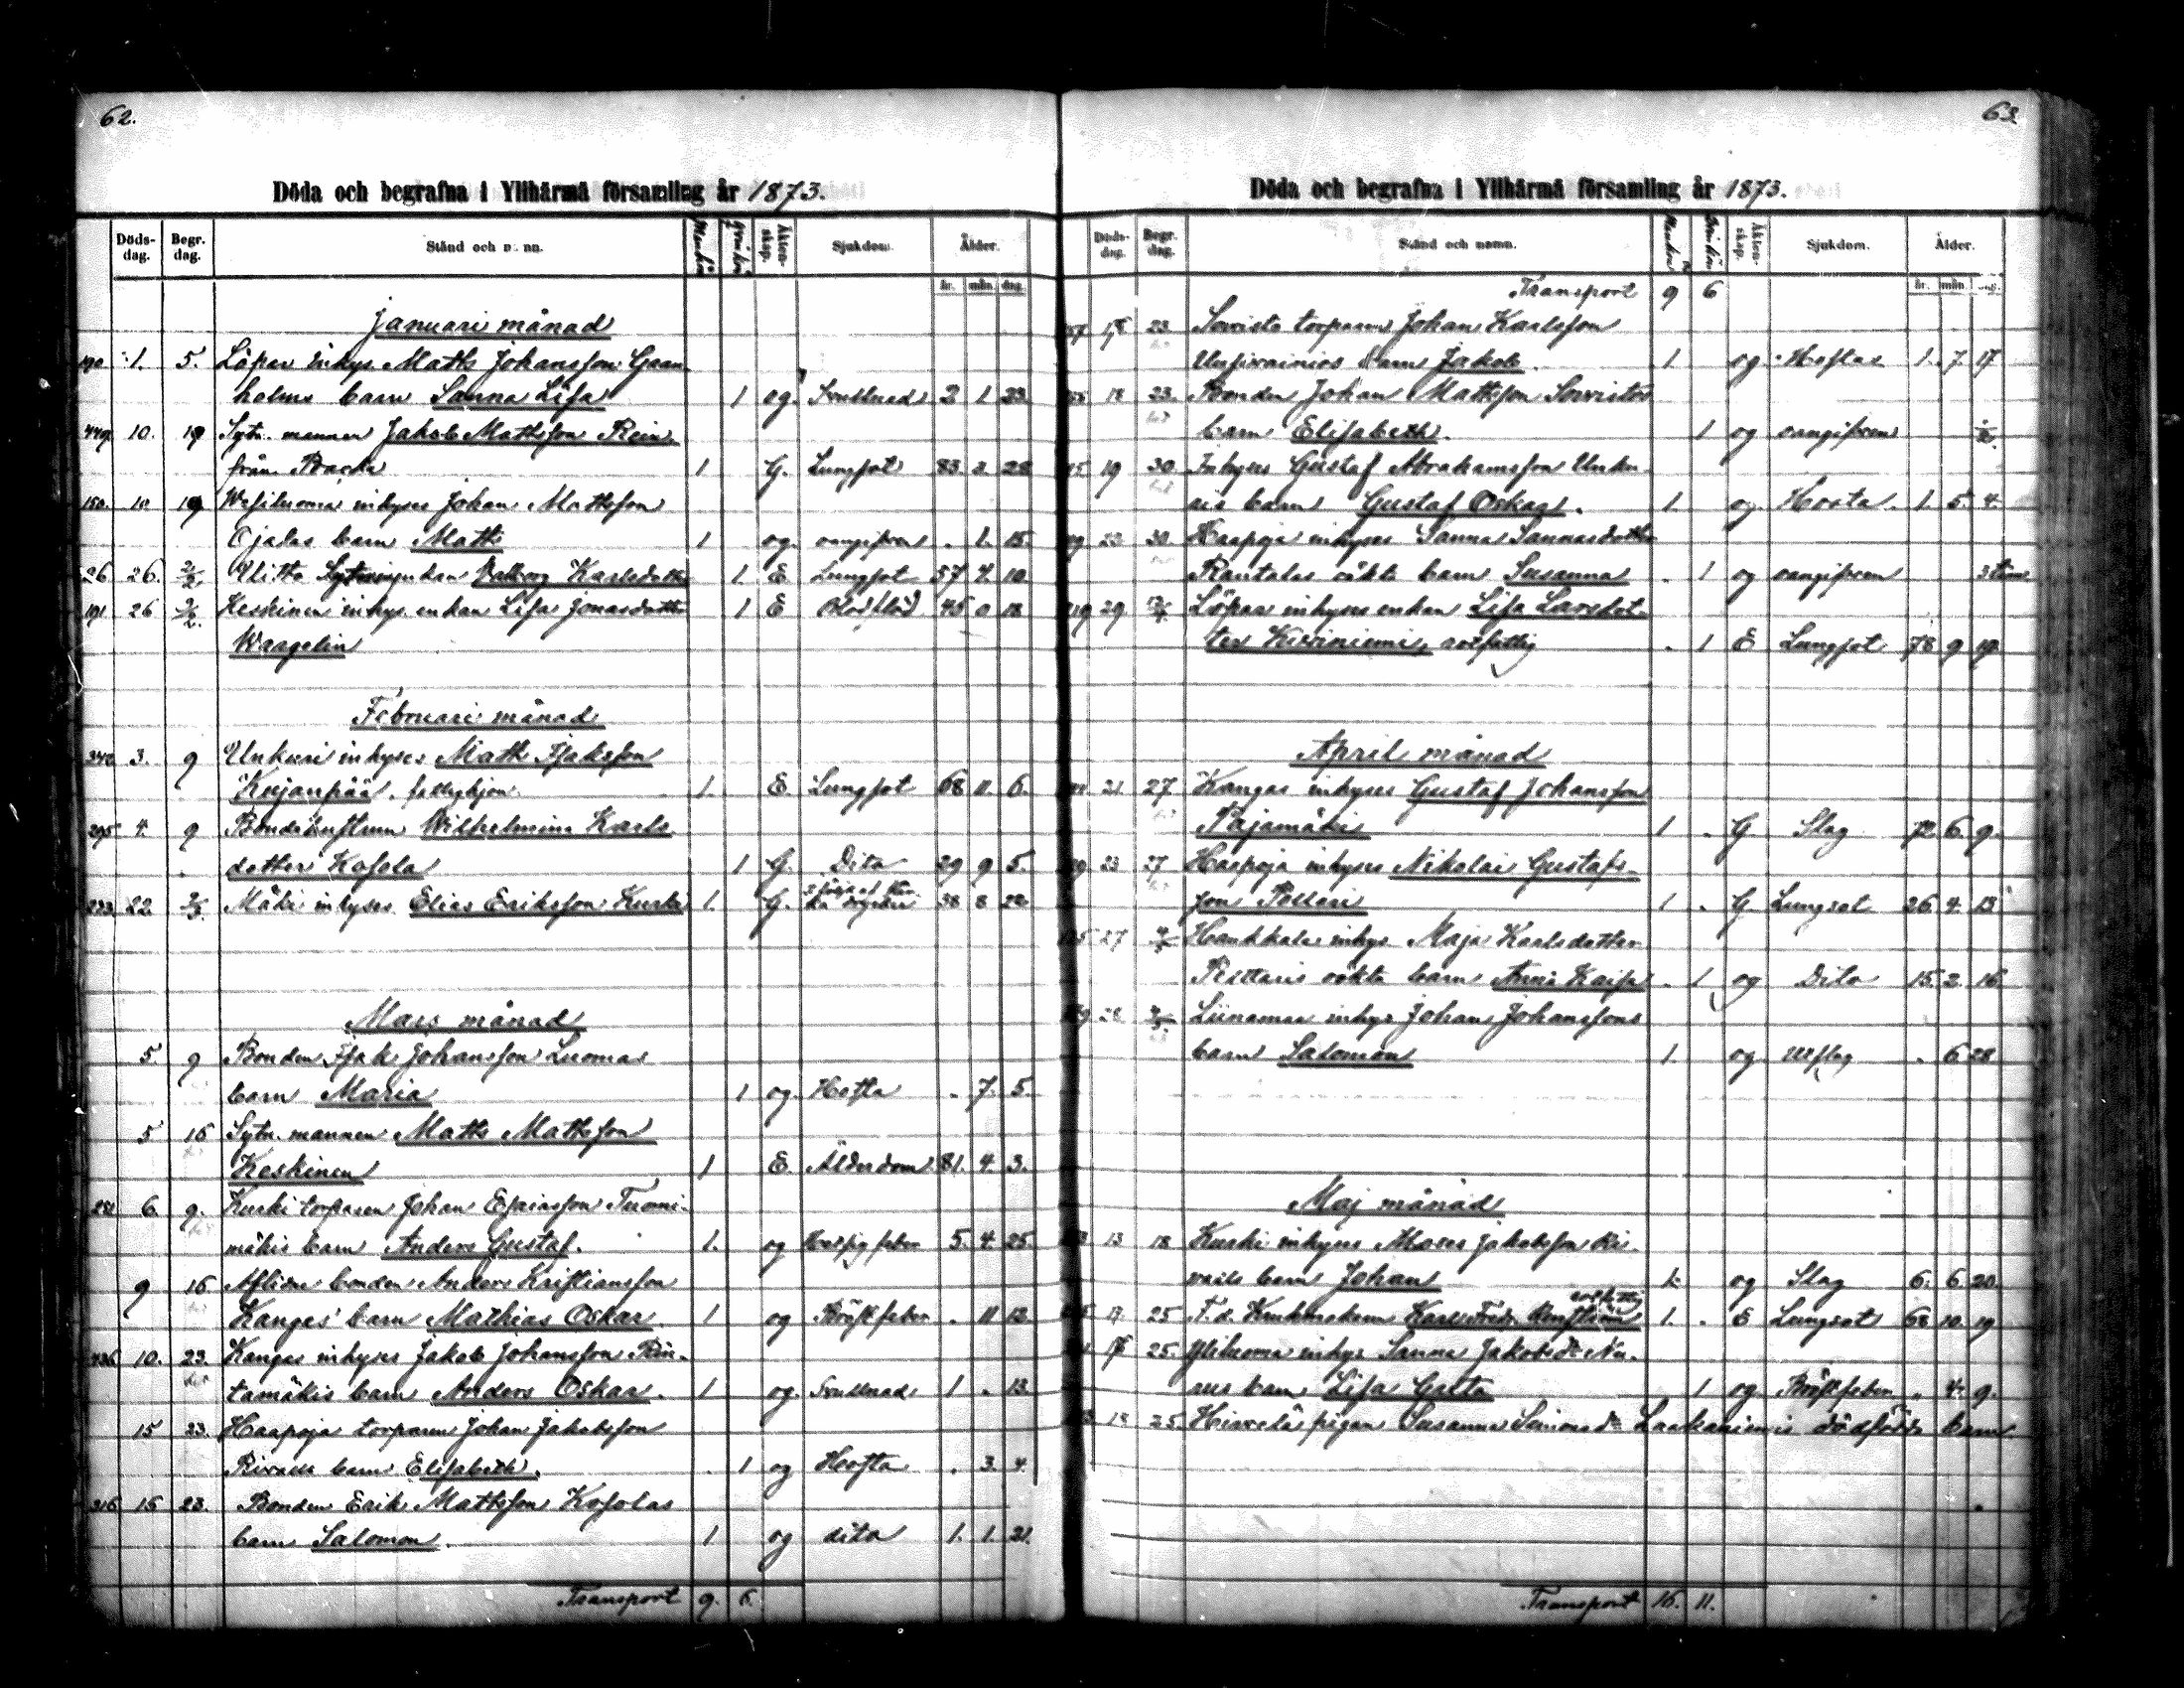 62.
Döda och begrafna i Ylihärmä församling år 1873.
Döds-dag. Begr. dag. Stånd och namn. Mankön Qvinkön Äktenskap. Sjukdom. Ålder.
år. mån. dag.
Januari månad
190 1. 5. Löpar inhys. Matts Johansson Gran
holms barn Sanna Lisa 1 og Svullnad 2 1 23.
449. 10. 19 Sytn. mannen Jakob Mattsson
från Backa 1 G. Lungsot 83. 2. 28
150. 10 19 inhyses Johan Mattsson
Ojalas barn Matts 1 og. oangifven . 1. 15.
26. 26. 2/2. Karlsdotter 1. E Lungsot 57 7. 10
191. 26 2/2. Keskinen inhys. enkan Lisa Jonasdotter 1 E 45 0 18.
Wargelin
Februari månad
340 3. 9 Unkuri inhyses Matts Isaksson
Kujanpää, fattighjon. 1. E. Lungsot 68 11. 6.
295 4. 9 Bondehustrun Wilhelmina Karls
dotter Kosola 1 G. Dito 29 9 5.
273. 22. 2/3. Mäki inhyses Elias Eriksson Kurki 1. G. 38 8 22
Mars månad
5. 9 Bonden Isak Johansson Luomas
barn Maria 1 og. Hosta . 7. 5.
5 16 Sytn. mannen Matts Mattsson
Keskinen 1 E. Ålderdom 81. 4. 3.
252 6. 9. Kurki torparen Johan Esaiasson Tuomi-
mäkis barn Anders Gustaf. 1. og feber 5. 4. 25.
9 16 Aflidne bonden Anders Kristiansson
Kangas barn Mathias Oskar. 1 og Bröstfeber . 11 12.
436 10. 23. Kangas inhyses Jakob Johansson Rin-
tamäkis barn Anders Oskar. 1 og. Svullnad 1 . 13.
15 23. Haapoja torparen Johan Jakobsson
barn Elisabeth. . 1 og Hosta . 3. 4.
316 15 23. Bonden Erik Mattsson Kosolas
barn Salomon. 1 og dito 1. 1. 21.
Transport 9. 6.
63.
Döda och begrafna i Ylihärmä församling år 1873.
Döds-dag. Begr. dag. Stånd och namn. Mankön Qvinkön Äktenskap. Sjukdom. Ålder.
år. mån. dag.
Transport 9 6
23. torparen Johan Karlsson
barn Jakob. 1. og. Hosta 1. 7. 17
18 23. Bonden Johan Mattsson
barn Elisabeth. 1 og oangifven
19 30. Inhyses Gustaf Abrahamsson Unku-
ris barn Gustaf Oskar. 1. og. Hosta. 1. 5. 4.
23. 30. Haapoja inhyses Sanna
Rantalas oäkta barn Susanna . 1 og oangifven 3 tim
29. Löpar inhyses enkan Lisa Larsdot-
ter Kiviniemi, . 1 E Lungsot 78 9 19.
April månad
21. 27 Kangas inhyses Gustaf Johansson
Pajamäki 1 . G. Slag 72. 6 9.
23 27 Haapoja inhyses Nikolai Gustafs-
son Pelleri 1 . G. Lungsot 26. 4. 13
27 4/5 inhys. Maja Karlsdotter
oäkta barn Anna Kaisa . 1 og Dito 15. 2. 16.
28. Liinamaa inhys Johan Johanssons
barn Salomon 1. og Utslag . 6 28
Maj månad
13 18 Kurki inhyses Moses Jakobsson
barn Johan 1. og Slag 6. 6. 20.
17. 25 F. d. Karl Fredr. 1. . E Lungsot 68 10. 19
25. Yliluoma inhys Sanna Jakobsdr
barn Lisa Greta 1 og. Bröstfeber . 4. 9.
18 25. Hirvelä pigan Susanna Simonsdr dödfödde barn
Transport 16. 11.